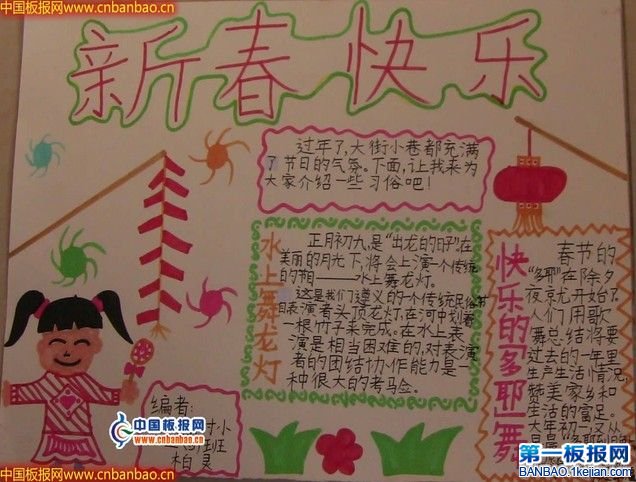 中国板报网
www.cnbanbao.cn
中国板报网
www.cnbanbao.cn
新春快乐
过年了,大街小巷都充满
了节日的气氛。下面,让我来为
大家介绍一些习俗吧!
水上舞龙灯
正月初九,是“出龙的日子”,在
美丽的月光下,将会上演一个传统
的
——水上舞龙灯。
这是我们遵义的一个传统民俗节
目表演者头顶龙灯,在河中划着
一根竹子来完成。在水上表
演是相当困难的,对表演
者的团结协作能力是一
种很大的考验。
快乐的多耶舞
春节的
“多耶”在除夕
夜就开始了。
人们用歌
舞总结将要
过去的一年里
生产生活情况,
赞美家乡和
生活的富足。
大年初一,又从
编者:
小
班
柏灵
中国板报网
www.cnbanbao.cn
中国板报网
www.cnbanbao.cn
第一板报网
BANBAO.1kejian.com